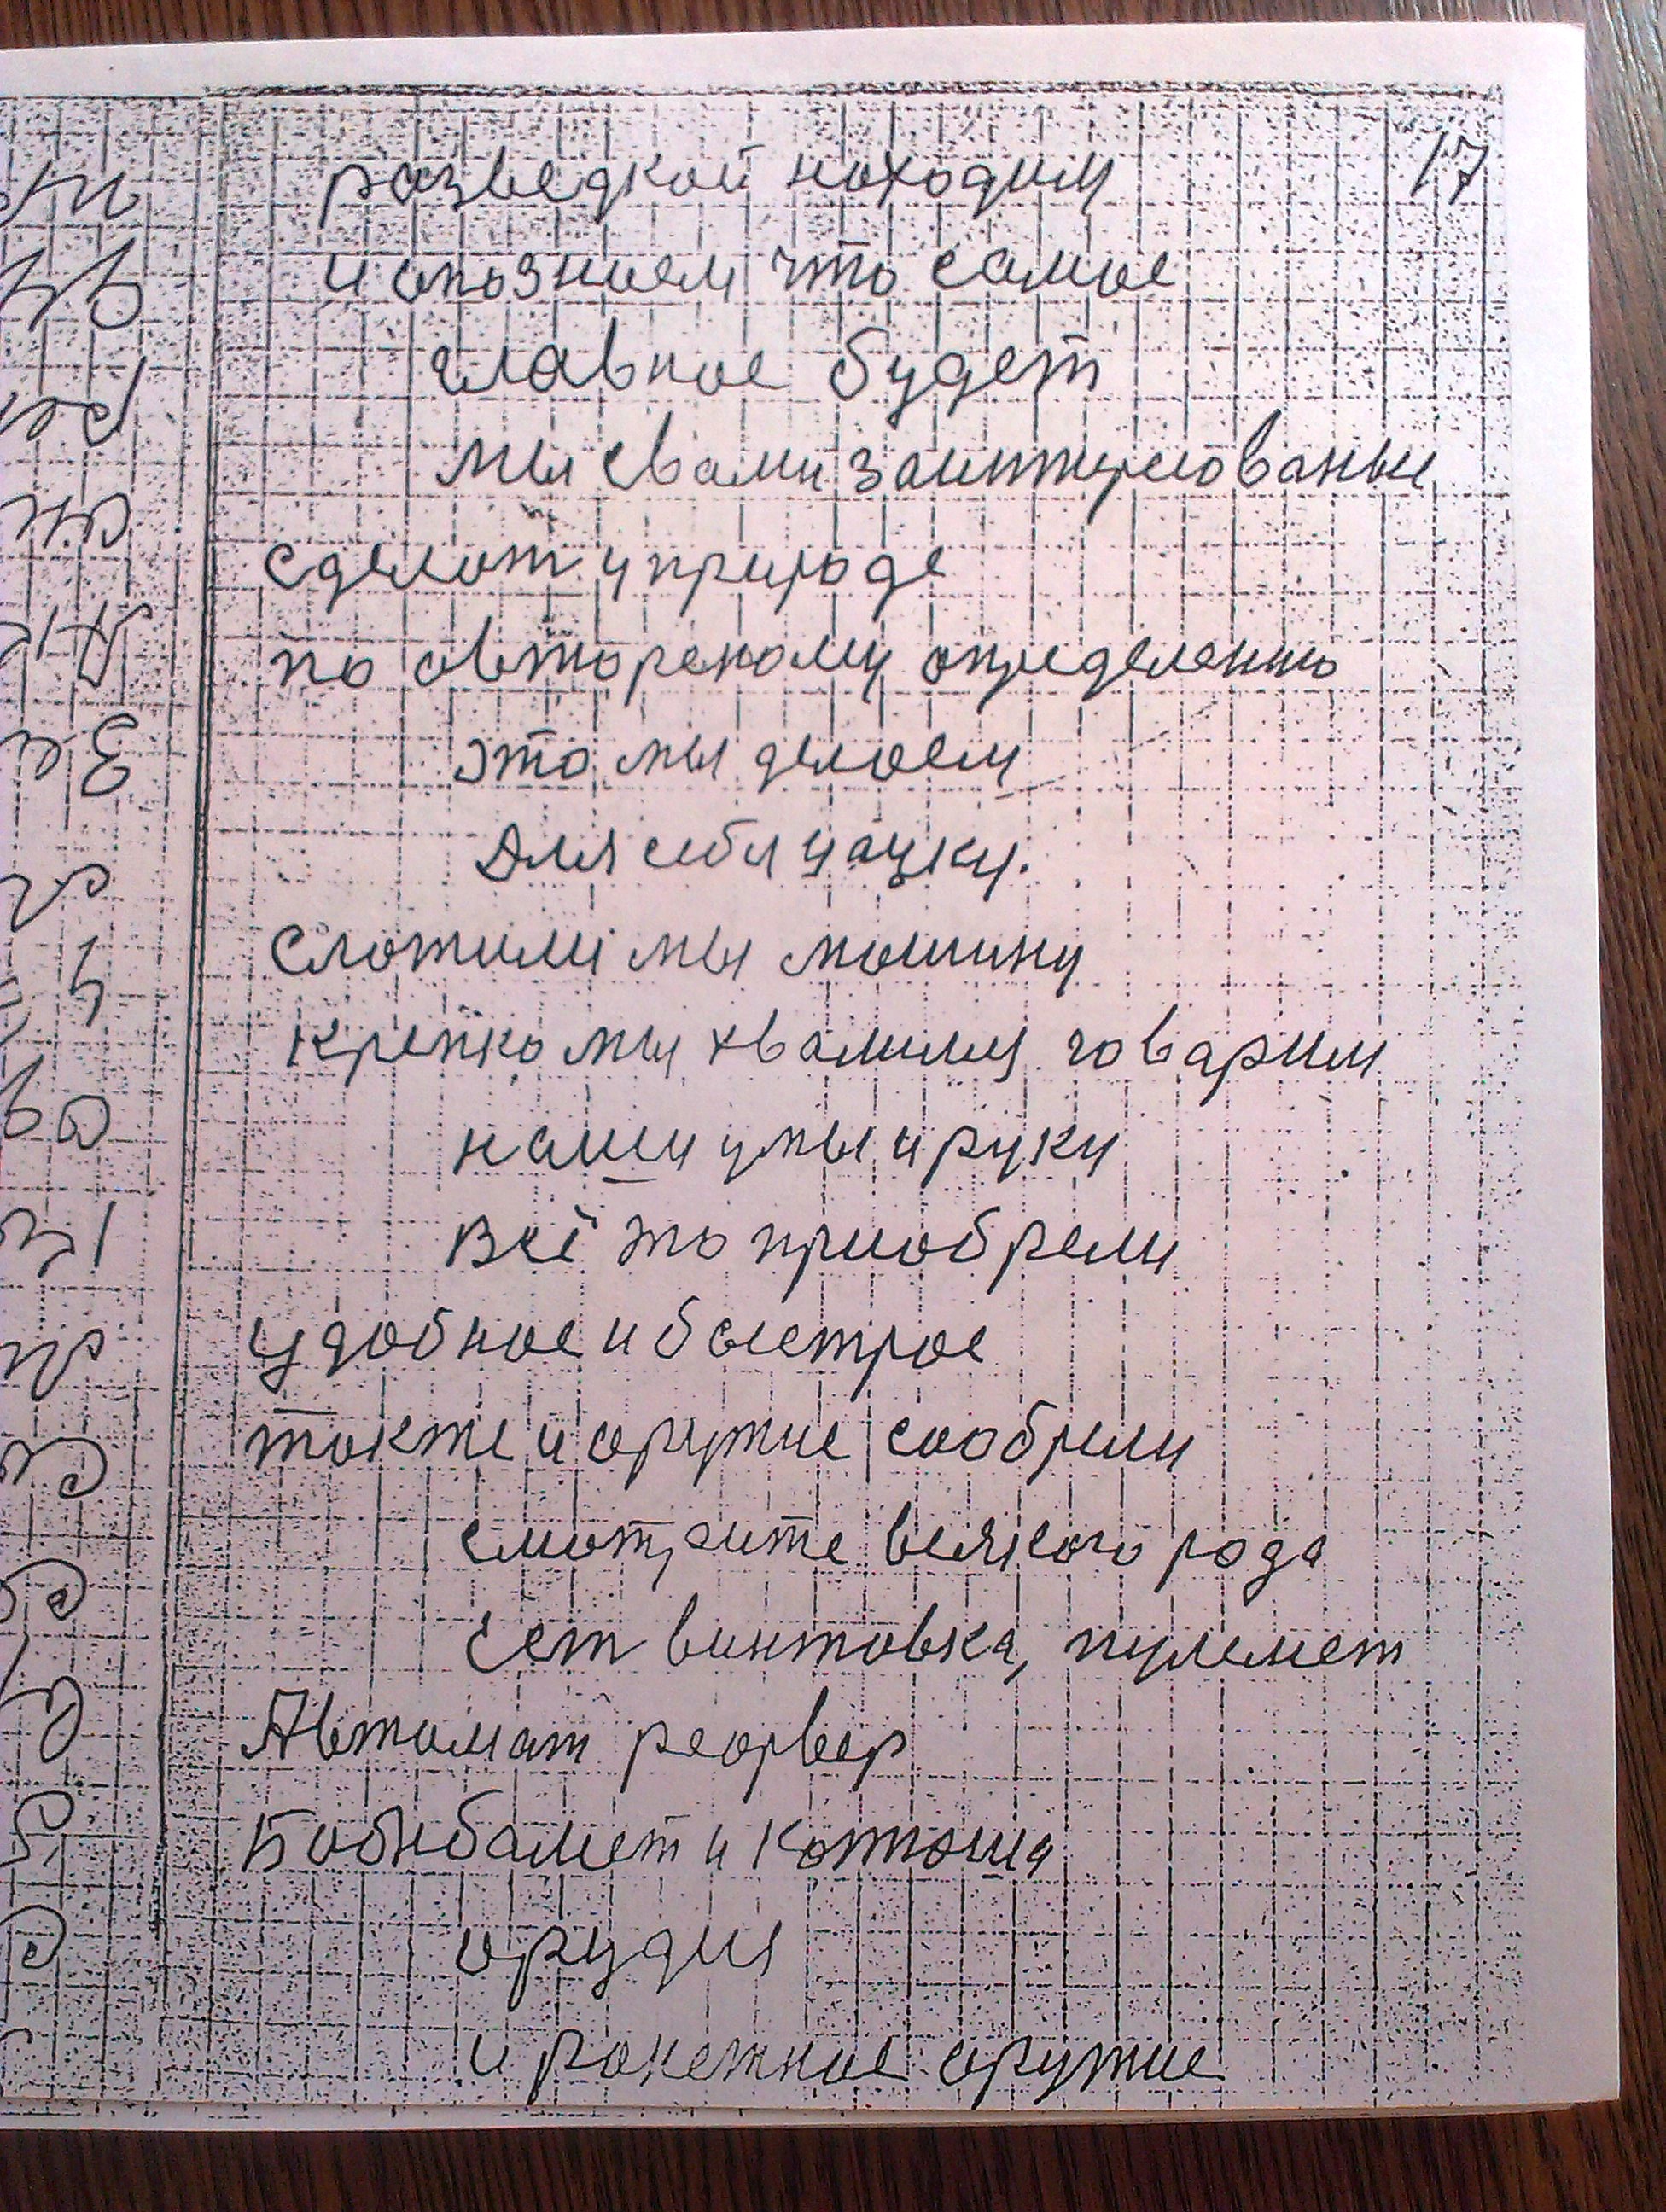 17
разведкой находим
и опознаем что самое
главное будет
мы свами заинтересованые
сделат уприроде
по авторскому определению
это мы делаем
Для себя уачку.
Сложили мы машину
крепко мы хвалимия говарим
наши умы и руки
всё то приобрели
удобное и быстрое
такжe и оружие сообрели
смотрите всякого рода
ест винтовка, пулемет
Автомат реорвер
и Катюша
орудия
и ракетное оружие